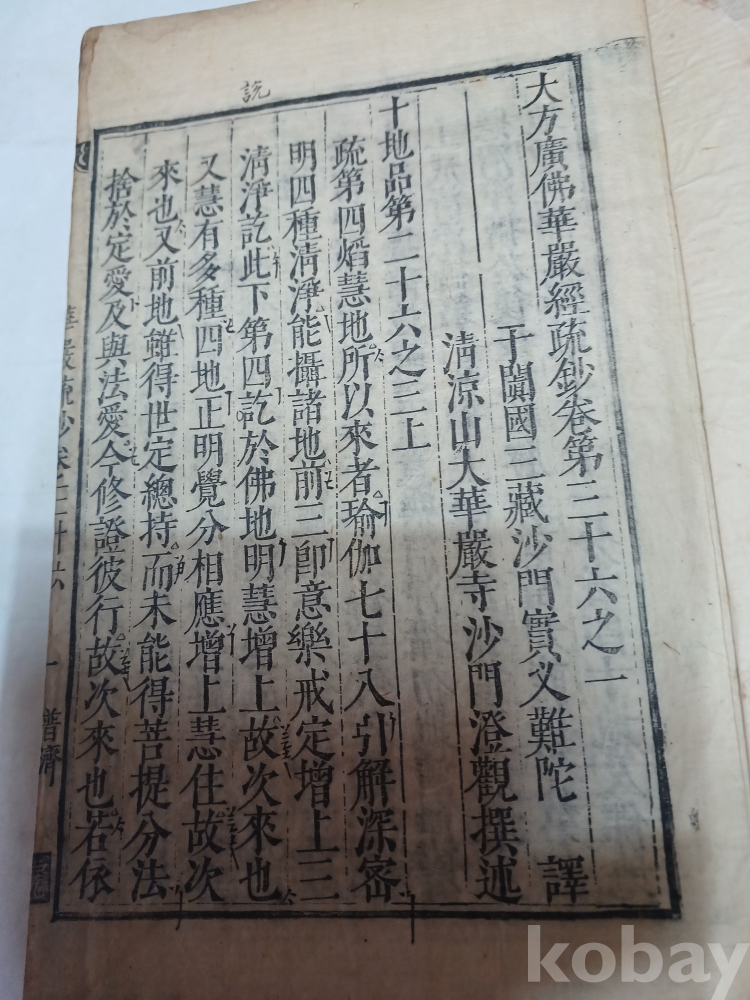 說
大方廣佛華嚴經疏鈔卷第三十六之一
于闐國三藏沙門實叉難陀 譯
清涼山大華嚴寺沙門澄觀撰述
十地品第二十六之三上
疏第四焰慧地所以來者瑜伽七十八引解深密
明四種清淨能攝諸地前三即意樂戒定增上三
清淨訖此下第四訖於佛地明慧增上故次來也
又慧有多種四地正明覺分相應增上慧住故次
來也又前地雖得世定總持而未能得菩提分法
捨於定愛及與法愛今修證彼行故次來也若依
華嚴疏鈔卷三十六 一 普濟
kobay